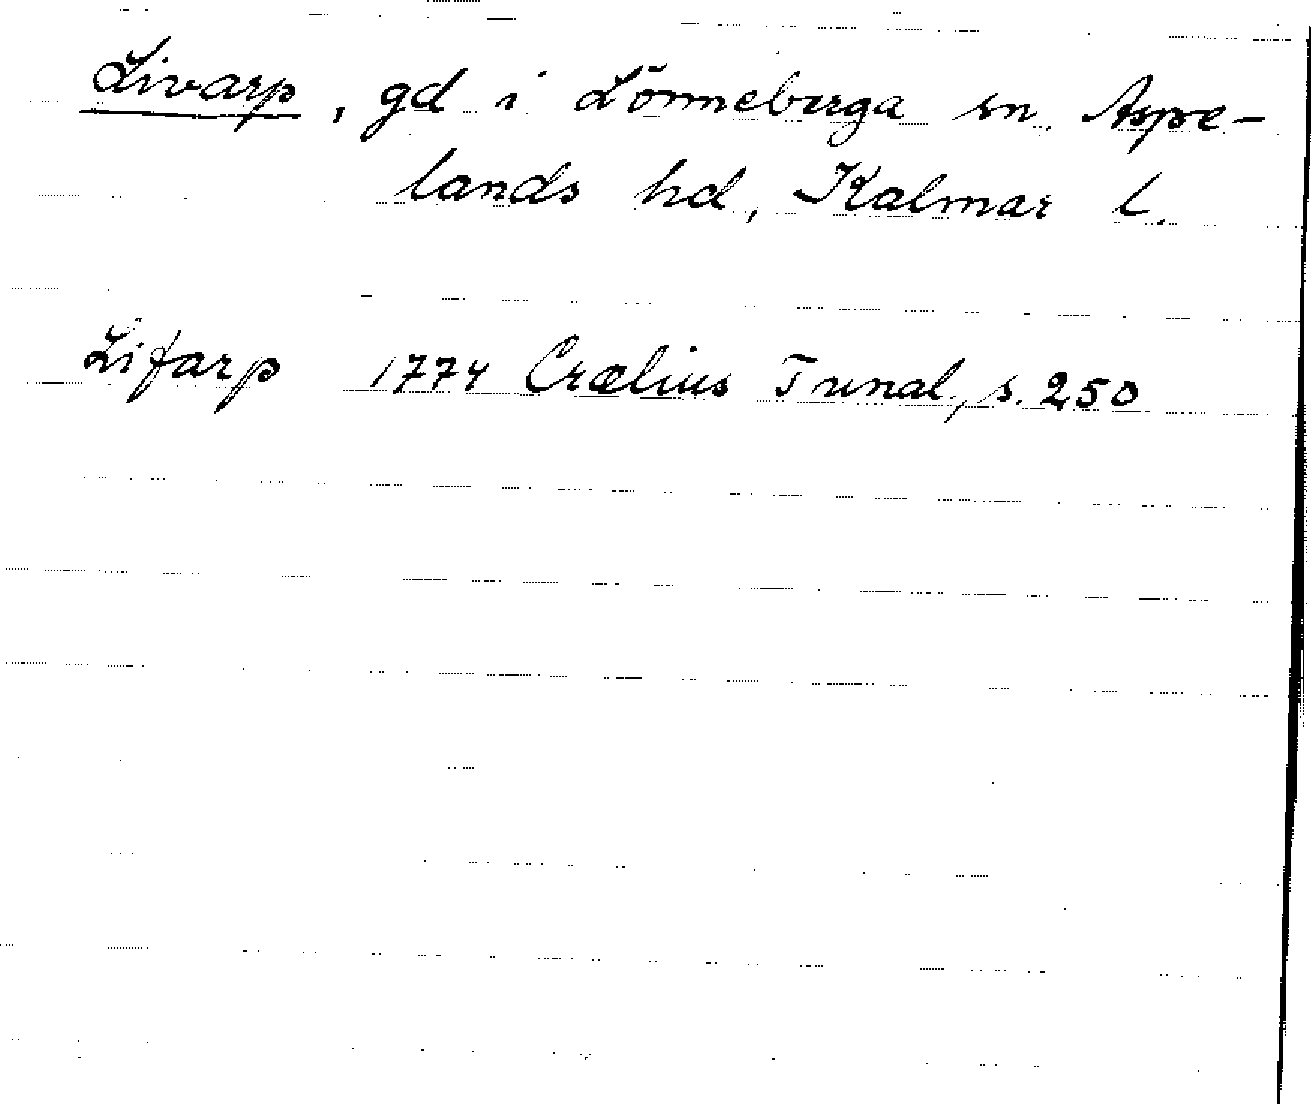 Livarp, gd i Lönneberga sn. Aspe-
lands hd, Kalmar l.
Lifarp 1774 Crælius Tunal., s. 250